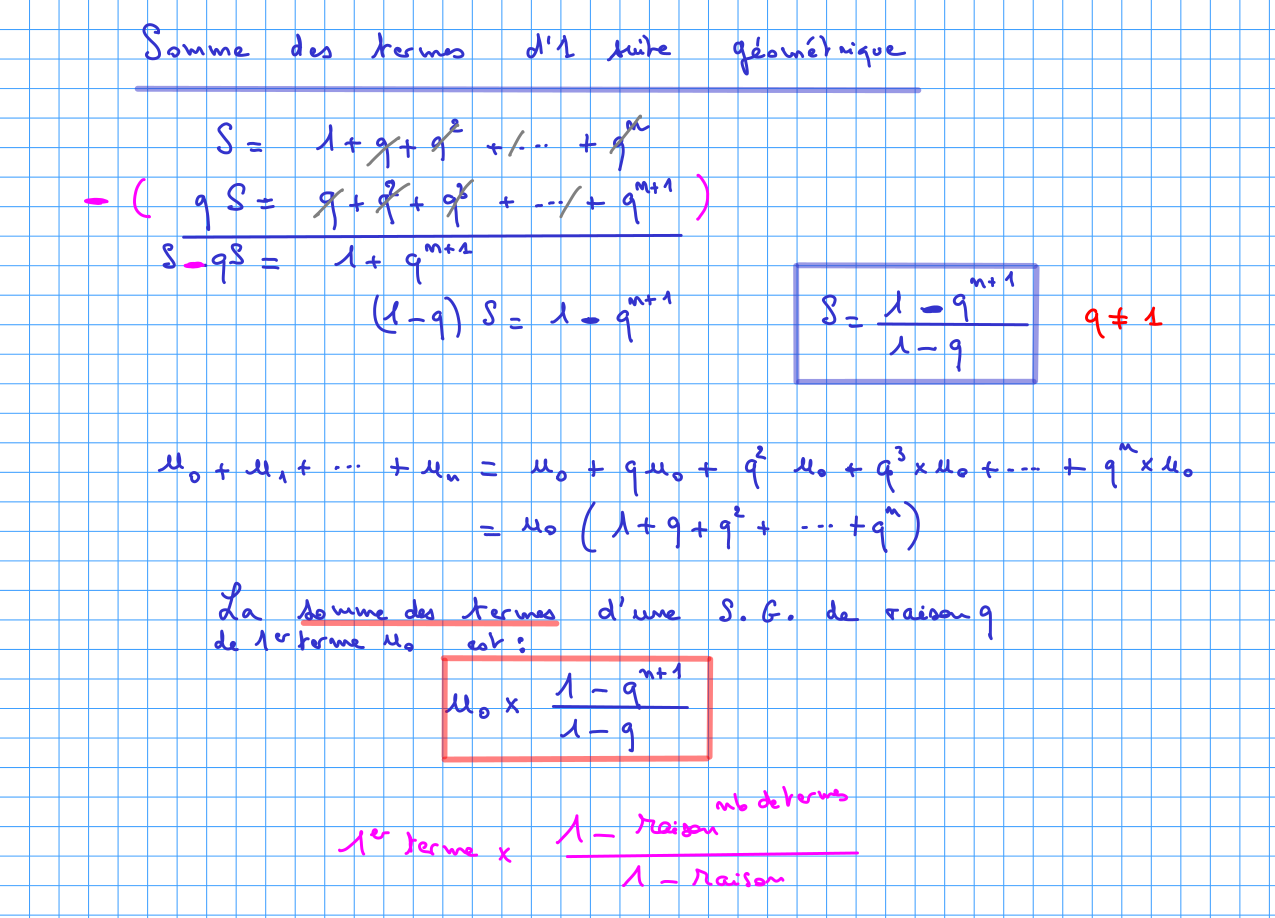 Somme des termes d'1 suite géométrique
S = 1 + q + q² + ... + qⁿ
- ( q S = q + q² + q³ + ... + qⁿ⁺¹ )
S - qS = 1 + qⁿ⁺¹
(1 - q) S = 1 - qⁿ⁺¹
S = (1 - qⁿ⁺¹) / (1 - q) q ≠ 1
u₀ + u₁ + ... + uₙ = u₀ + q u₀ + q² u₀ + q³ × u₀ + ... + qⁿ × u₀
= u₀ ( 1 + q + q² + ... + qⁿ )
La somme des termes d'une S.G. de raison q
de 1er terme u₀ est :
u₀ × (1 - qⁿ⁺¹) / (1 - q)
1er terme × (1 - raison^nb de termes) / (1 - raison)